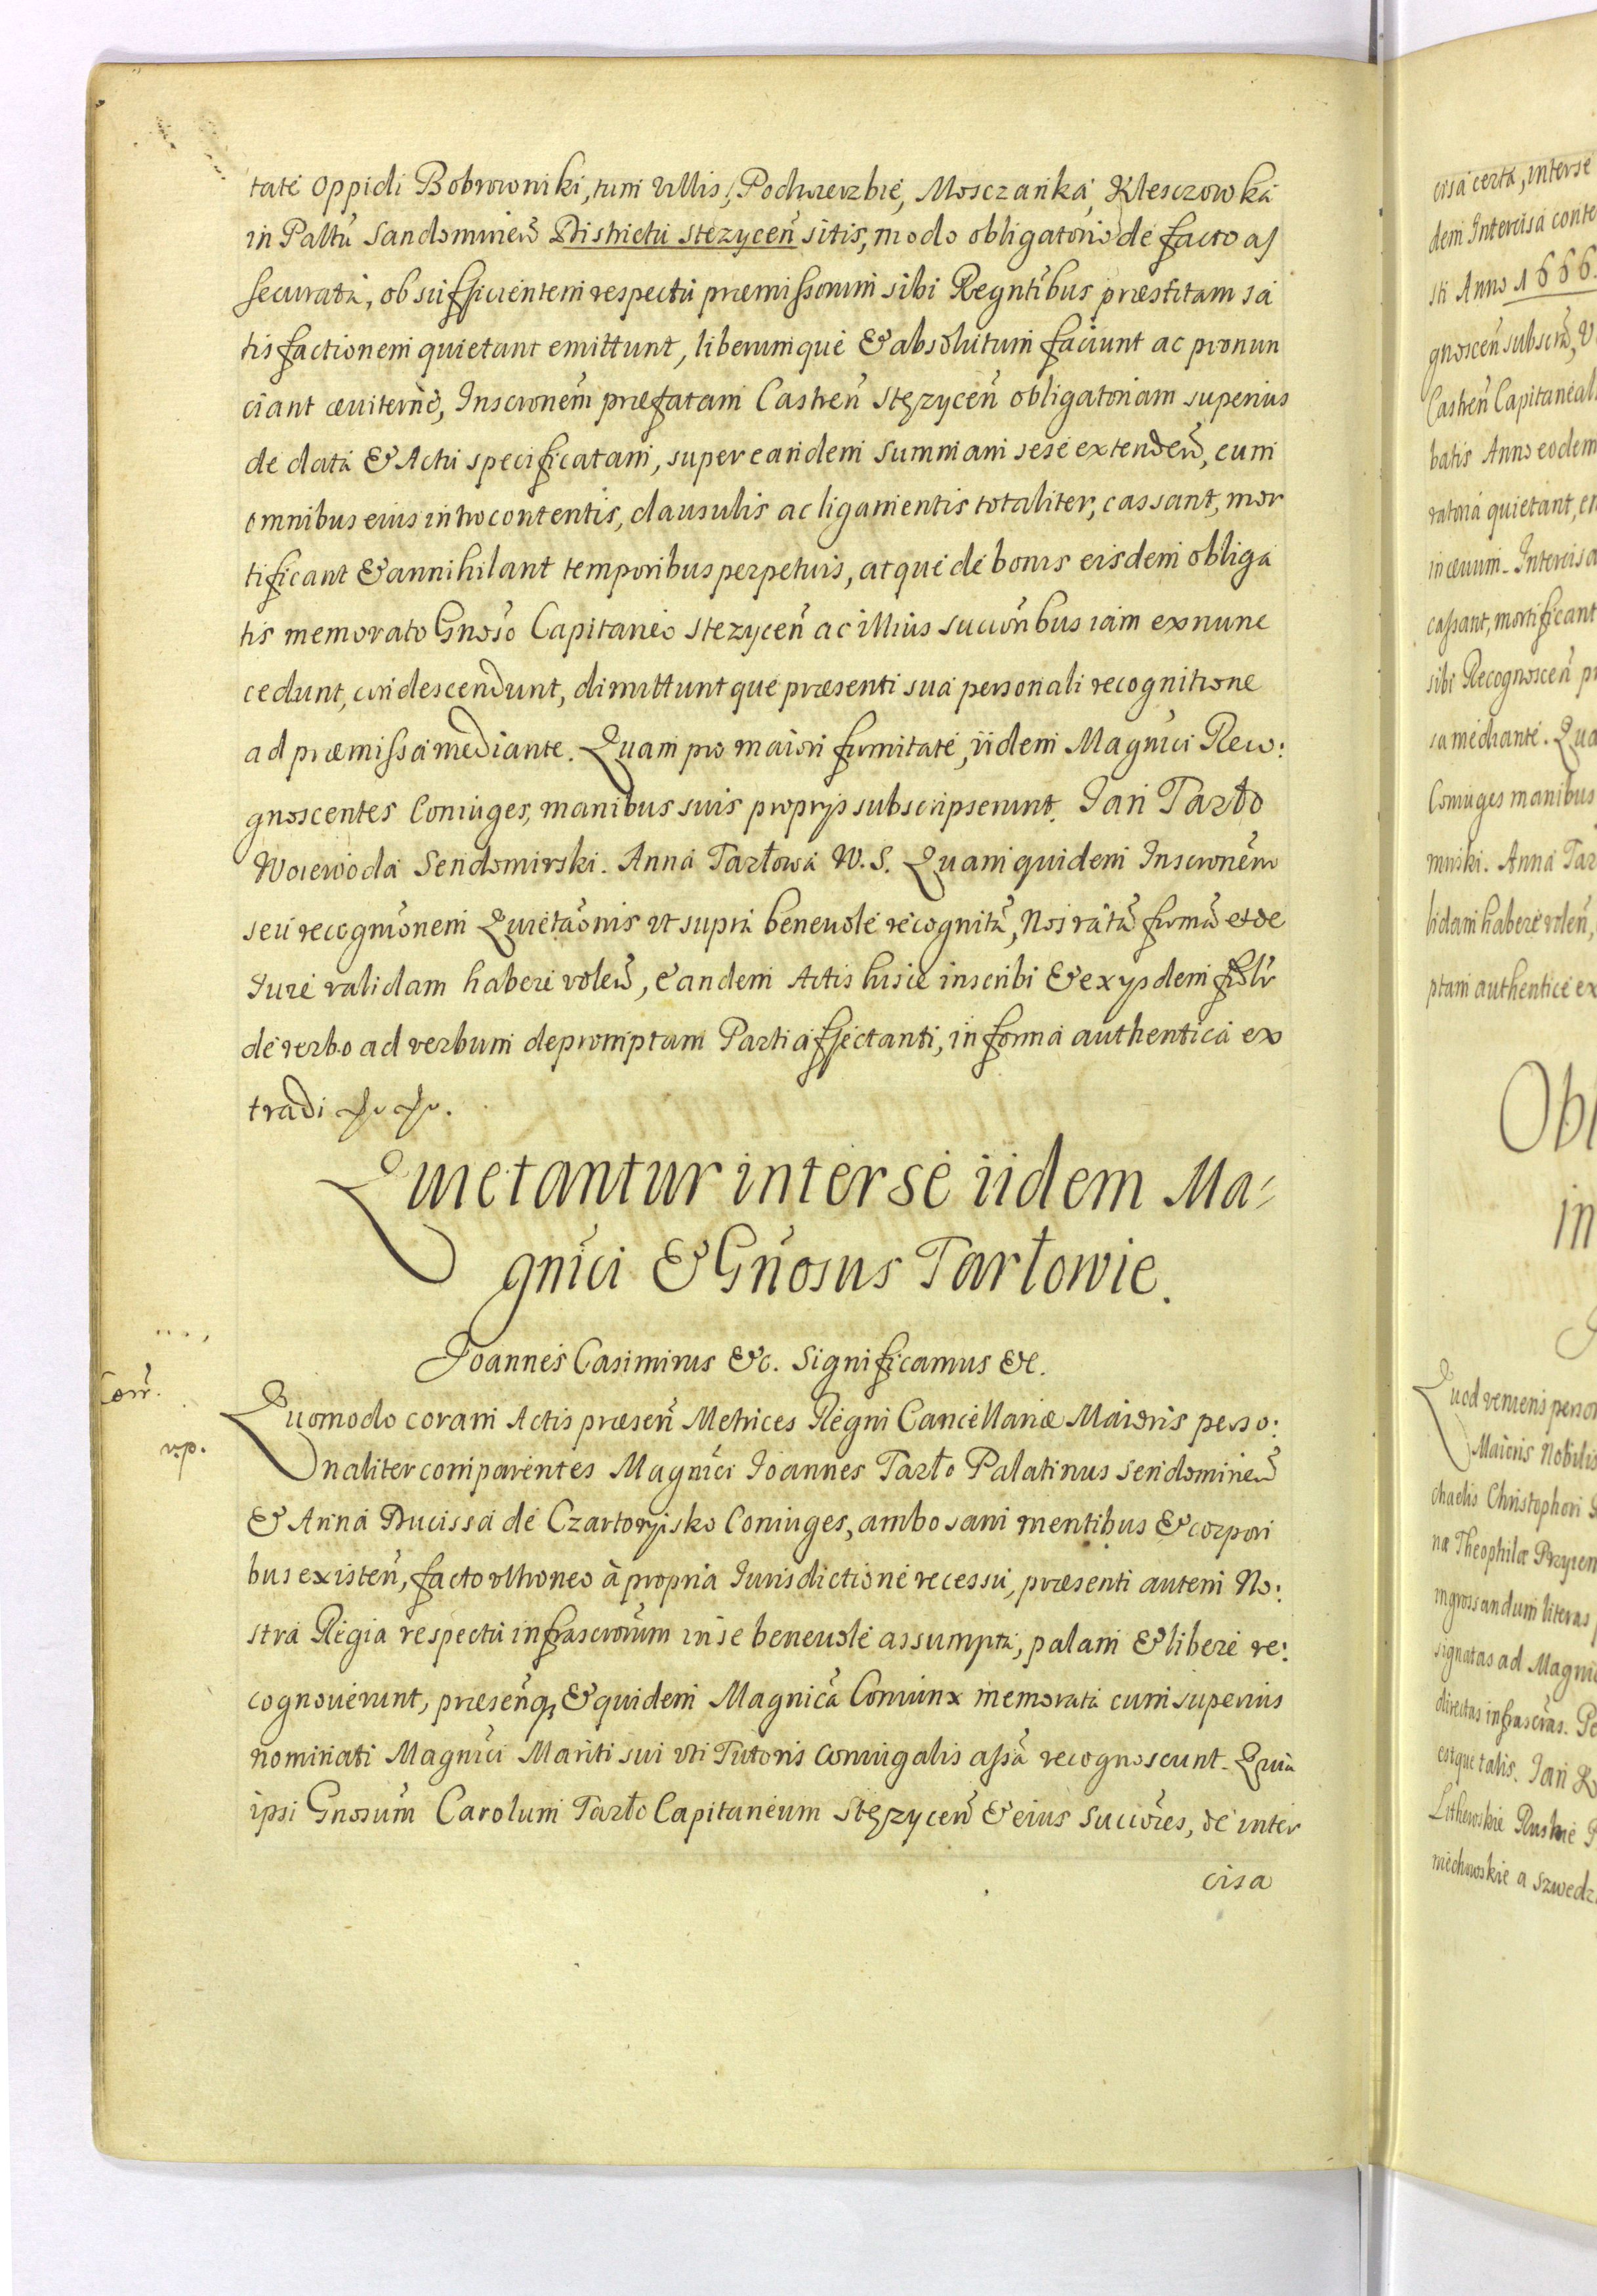 tate oppidi Bobrowniki, tum Villis, Podwierzbie, Mosczanka, Klesczowka
in Paltũ Sandomirieñ Districtu Stezyceñ sitis, modo obligatorio de facto as
securata, ob sufficientem respectu præmissorum sibi Regntĩbus præstitam sa
tisfactionem quietant emittunt, liberumque & absolutum faciunt ac pronun
ciant æviternè, Inscronẽm præfatam Castreñ Stęzyceñ obligatoriam superius
de data & Actu specificatam, super eandem summam sese extendeñ, cum
omnibus eius introcontentis, clausulis ac ligamentis totaliter, cassant, mor
tificant & annihilant temporibus perpetuis, atque de bonis eisdem obliga
tis memorato Gnoso Capitaneo Stezyceñ ac illius succoribus iam ex nunc
cedunt, condescendunt, dimittuntque præsenti sua personali recognitione
ad præmissa mediante. Quam pro maiori firmitate, iidem Magnici Reco:
gnoscentes Coniuges, manibus suis proprijs subscripserunt. Jan Tarło
Woiewoda Sendomirski. Anna Tarłowa W. S. Quam quidem Inscronem
seu recognionem Quietaonis ut supra benevole recognitã, Nos ratã firmã et de
Jure validam haberi voleñ, eandem Actis hisce inscribi & ex ysdem
de verbo ad verbum depromptam Parti affectanti, in forma authentica ex
tradi
Quietantur inter se iidem Ma-
gnici & Gnosus Tarłowie.
Joannes Casimirus &c. Significamus &c.
Corr.
Quomodo coram Actis præseñ Metrices Regni Cancellariæ Maioris perso:
np.
naliter comparentes Magnici Joannes Tarło Palatinus Sendomirieñ
& Anna Ducissa de Czartoryisko Coniuges, ambo sani mentibus & corpori
bus existeñ, facto ulthoneo à propria Jurisdictione recessu, præsenti autem No:
stra Regia respectu infrascrorum in se benevole assumpta, palam & libere re:
cognoverunt, præsenq, & quidem Magnica Coniunx memorata cum superius
nominati Magnici Mariti sui uti Tutoris coniugalis assã recognoscunt. Quia
ipsi Gnosum Carolum Tarło Capitaneum Stęzyceñ & eius Succores, de inter
cisa
cisa certa, inter se
dem Intercisa conte
sti Anno 1666.
gnosceñ subscrã, V
Castreñ Capitaneal
batis Anno eodem
ratoria quietant, en
in ævum. Intercisa
cassant, mortificant
sibi Recognosceñ pr
sa mediante. Qua
Coniuges manibus
mirski. Anna Tar
lidam haberi voleñ,
ptam authentice ex
Obl
in
J
Quod veniens person
Maioris Nobilis
chaelis Christophori
næ Theophilæ Przyiem
ingrossandum literas
signatas ad Magnic
directas infrascras. Pe
estque talis. Jan K
Lithewskie Ruskie P
niechowskie a Szwedz